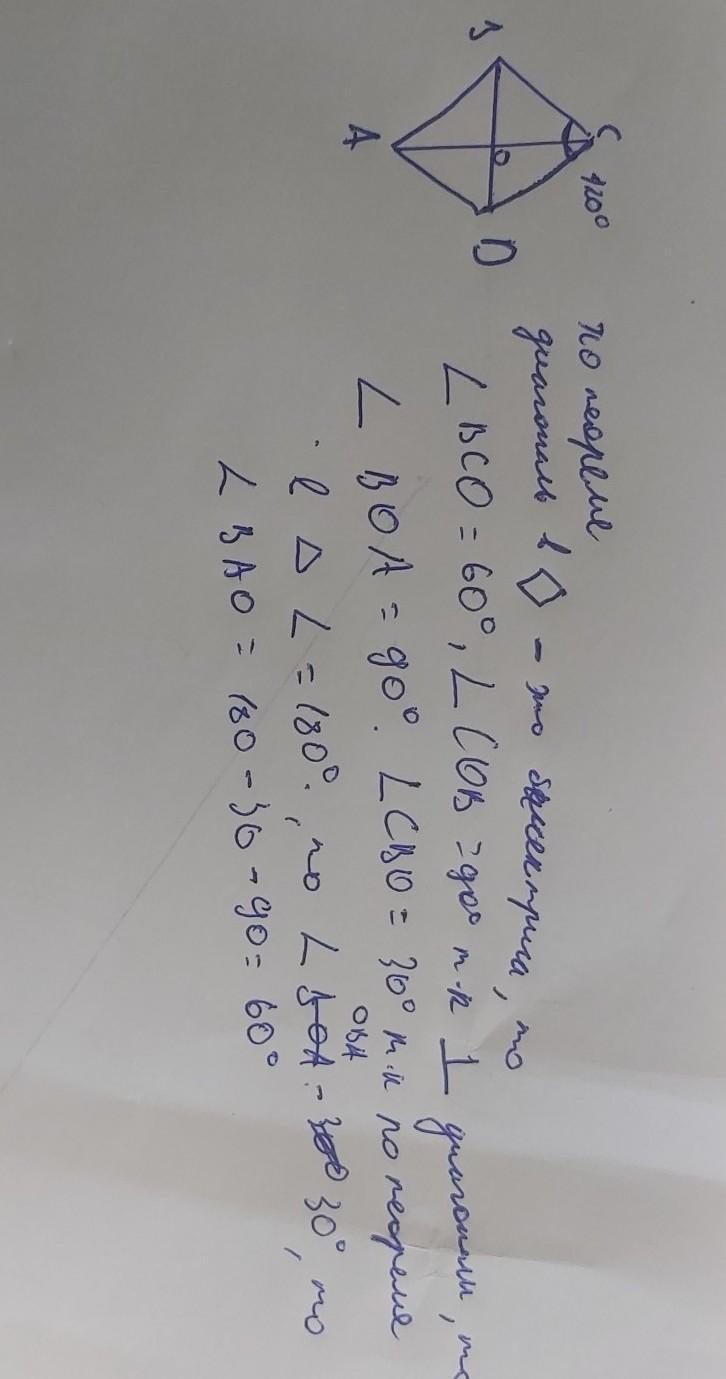 B
C
120°
O
A
D
по теореме
диагональ в ◇ - это биссектриса, то
∠ BCO = 60°, ∠ COB = 90° т.к ⊥ диагонали, то
∠ BOA = 90°. ∠ CBO = 30° т.к по теореме
в △ ∠ = 180°, то ∠ OBA = 30°, то
∠ BAO = 180 - 30 - 90 = 60°